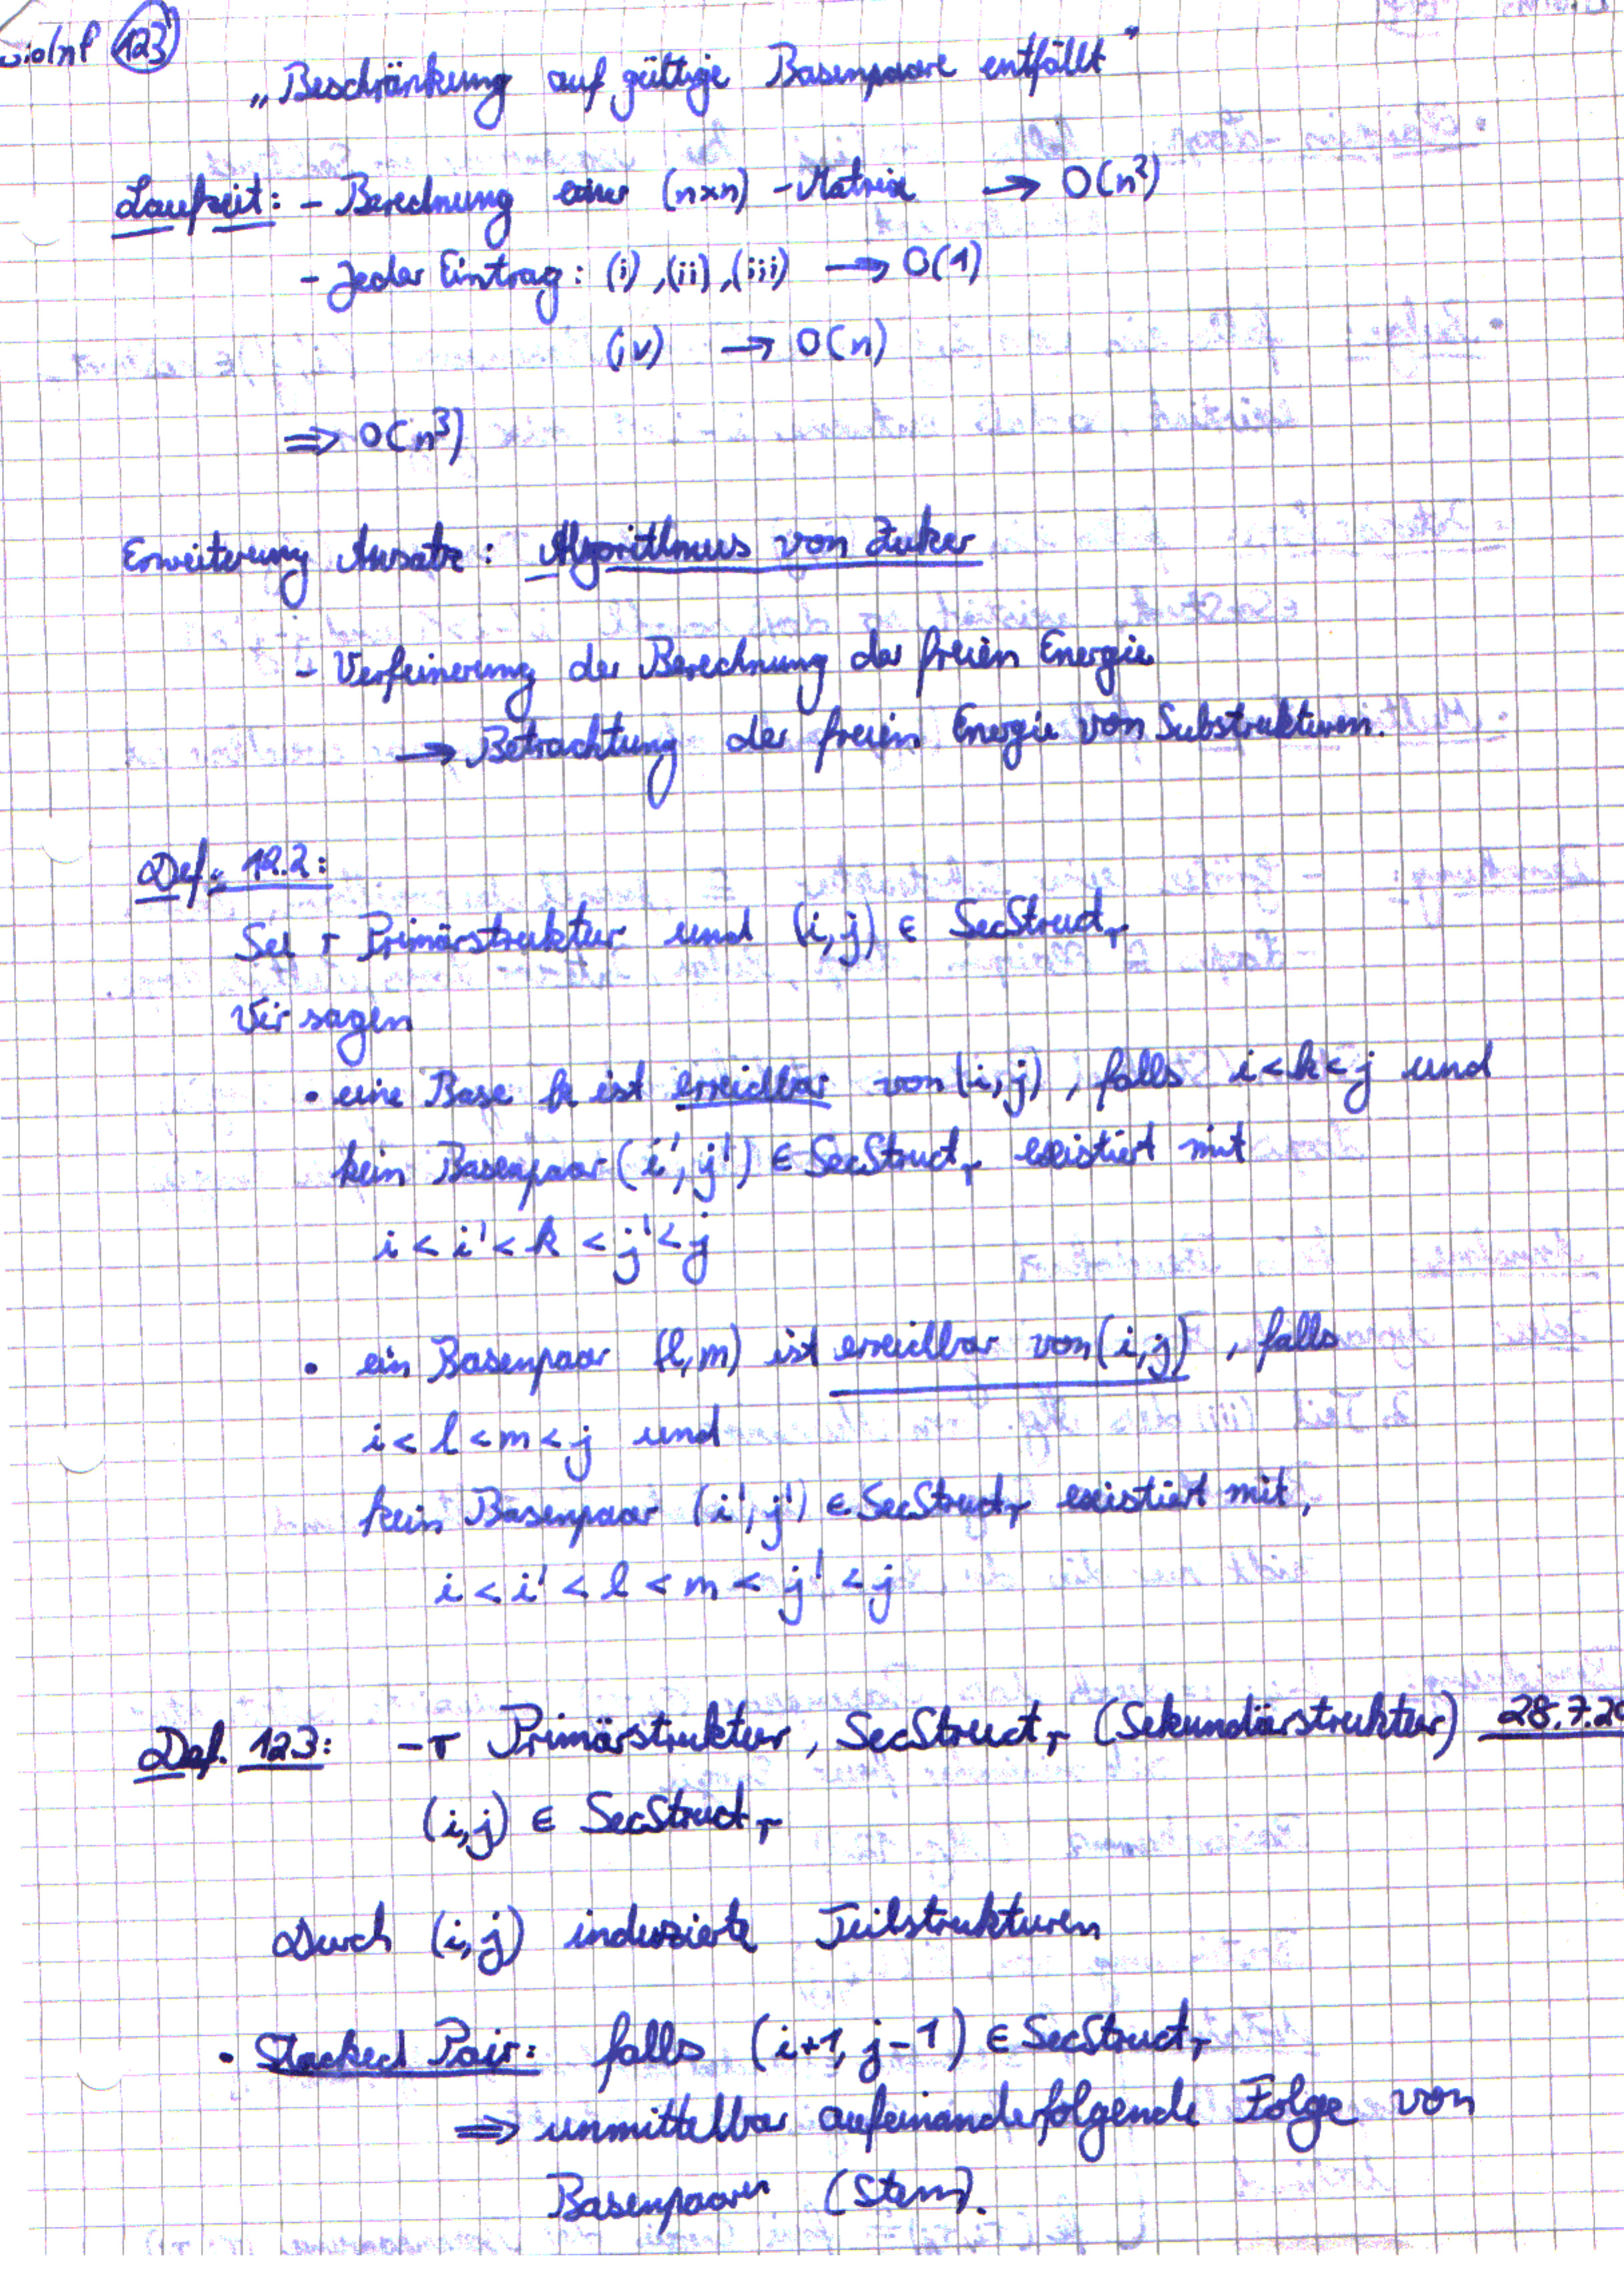 123
„Beschränkung auf gültige Basenpaare entfällt"
Laufzeit: - Berechnung einer (n×n) - Matrix → O(n²)
- Jeder Eintrag: (i), (ii), (iii) → O(1)
(iv) → O(n)
⇒ O(n³)
Erweiterung Ansatz: Algorithmus von Zuker
- Verfeinerung der Berechnung der freien Energie
→ Betrachtung der freien Energie von Substrukturen.
Def.: 12.2:
Sei r Primärstruktur und (i,j) ∈ SecStruct_r
Wir sagen
• eine Base k ist erreichbar von (i,j), falls i<k<j und
kein Basenpaar (i',j') ∈ SecStruct_r existiert mit
i < i' < k < j' < j
• ein Basenpaar (l,m) ist erreichbar von (i,j), falls
i < l < m < j und
kein Basenpaar (i',j') ∈ SecStruct_r existiert mit,
i < i' < l < m < j' < j
Def. 12.3: - r Primärstruktur, SecStruct_r (Sekundärstruktur) 28.7.20
(i,j) ∈ SecStruct_r
Durch (i,j) induzierte Teilstrukturen
• Stacked Pair: falls (i+1, j-1) ∈ SecStruct_r
⇒ unmittelbar aufeinanderfolgende Folge von
Basenpaaren (Stem).